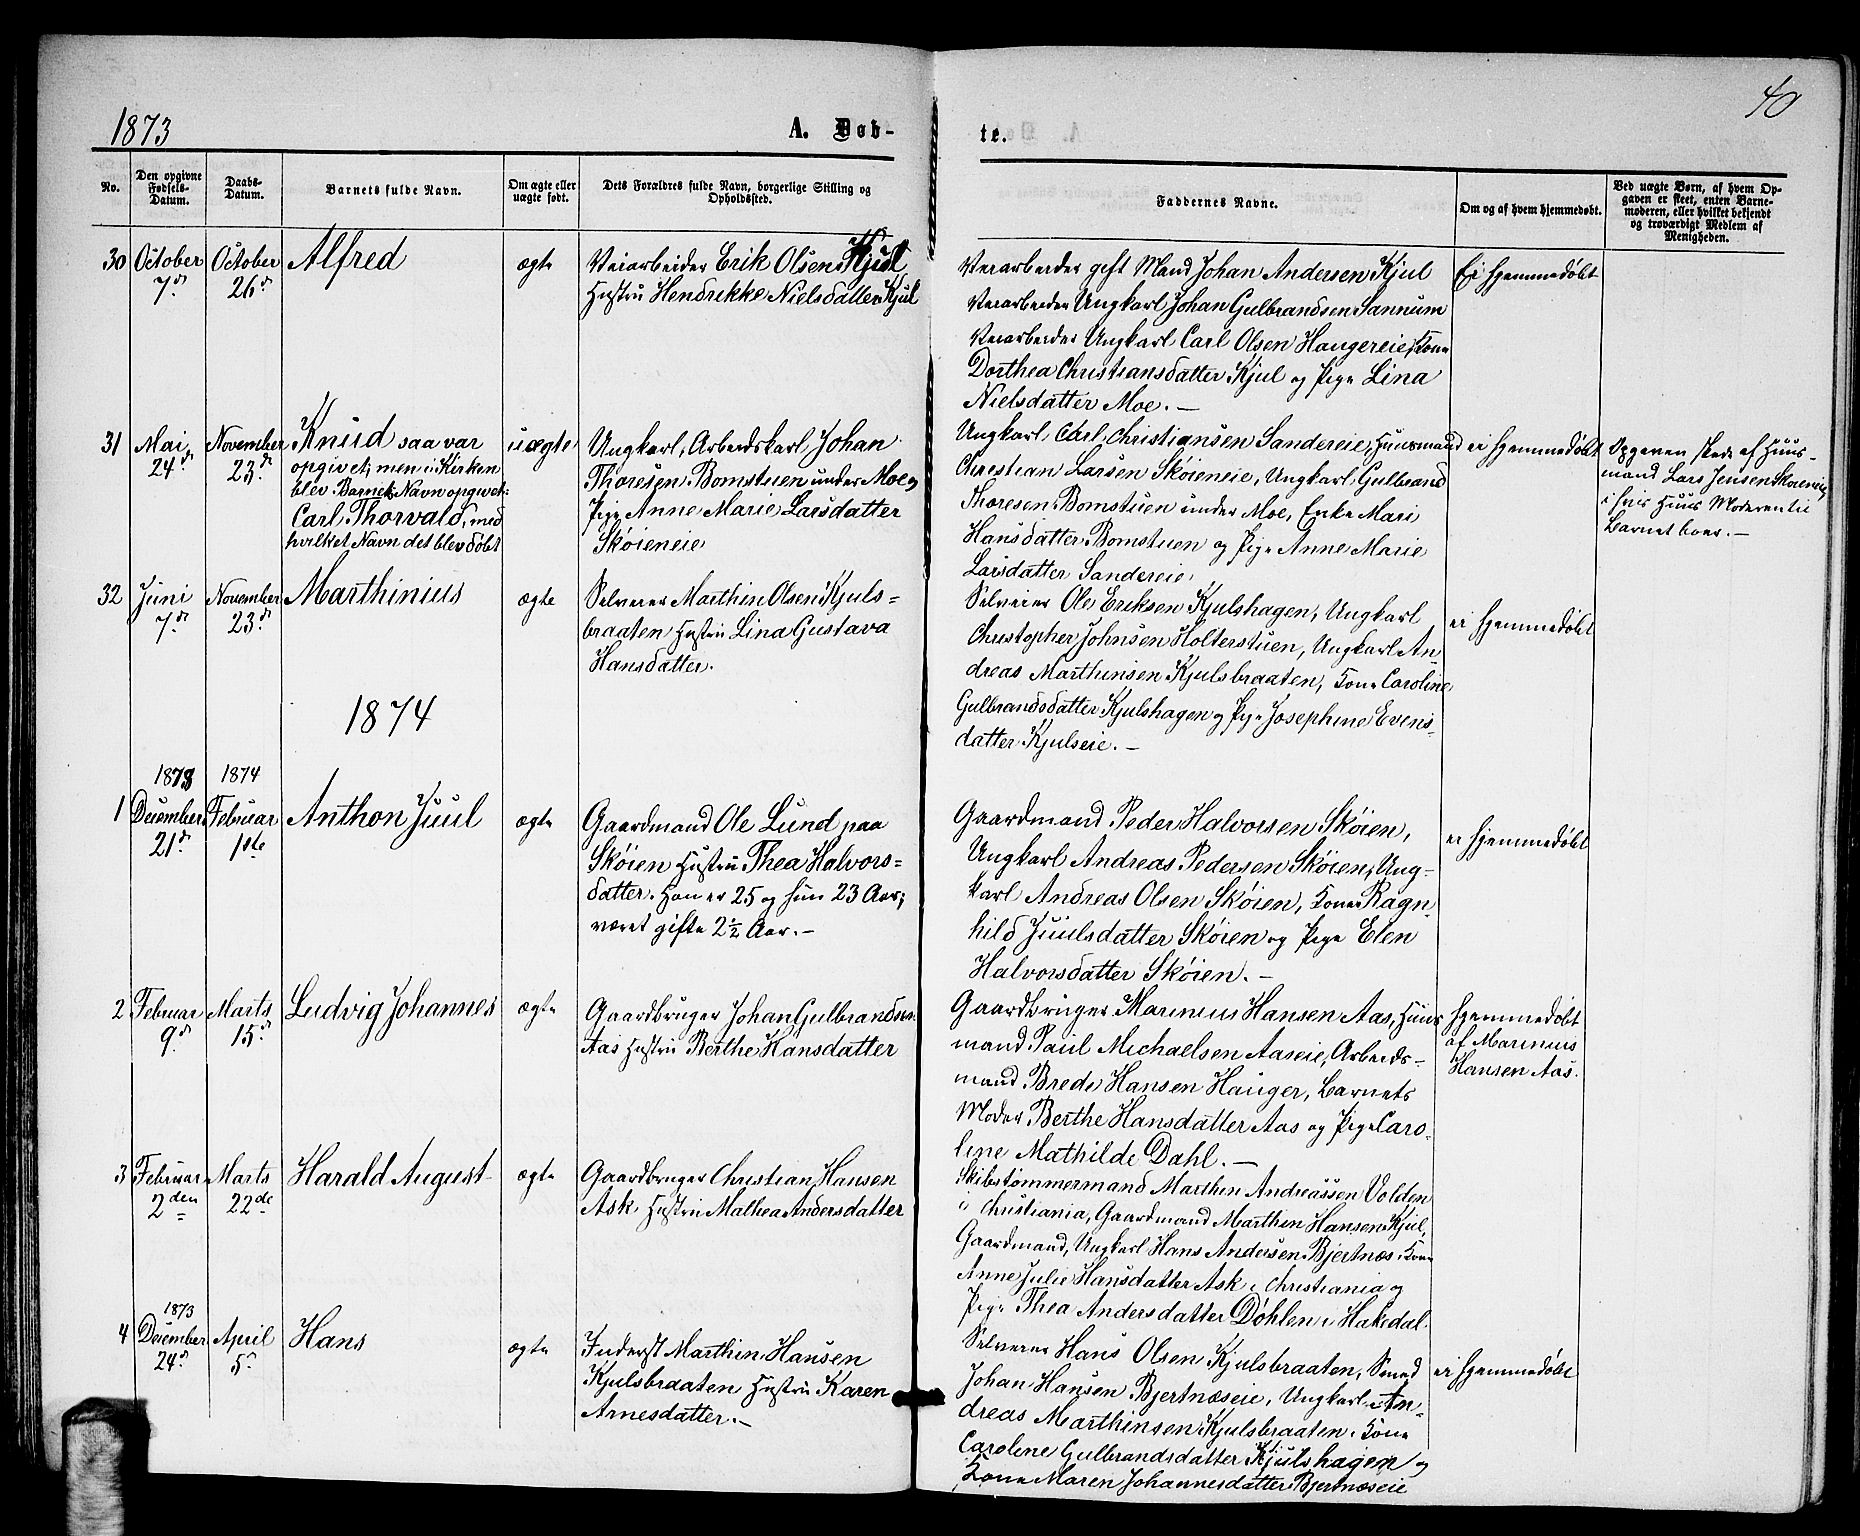 1873
A. Døb-
te.
40
No.
Den opgivne
Fødsels-
Datum.
Daabs-
Datum.
Barnets fulde Navn.
Om ægte eller
uægte født.
Dets Forældres fulde Navn, borgerlige Stilling og
Opholdssted.
Faddernes Navne.
Om og af hvem hjemmedøbt.
Ved uægte Børn, af hvem Op-
gaven er skeet, enten Barne-
moderen, eller hvilket bekjendt
og troværdigt Medlem af
Menigheden.
30 October October Alfred ægte
7de 26de
Veiarbeider Erik Olsen Kjul
Hustru Hendrikke Nielsdatter Kjul
Veiarbeider gift Mand Johan Andersen Kjul
Veiarbeider Ungkarl Johan Gulbrandsen Sannum
Veiarbeider Ungkarl Carl Olsen Haugereie, Kone
Dorthea Christiansdatter Kjul og Pige Lina
Nielsdatter Moe. –
Ei hjemmedøbt
31 Mai November Knud saa var uægte
24de 23de opgivet, men i Kirken
blev Barnets Navn opgivet:
Carl Thorvald, med
hvilket Navn det blev døbt
Ungkarl, Arbeidskarl Johan
Thoresen Bomstuen under Moe og
Pige Anne Marie Larsdatter
Skøieneie
Ungkarl Carl Christiansen Sandereie, Huusmand
Christian Larsen Skøieneie, Ungkarl Gulbrand
Thoresen Bomstuen under Moe, Enke Mari
Hansdatter Bomstuen og Pige Anne Marie
Larsdatter Sandereie,
ei hjemmedøbt
Opgaven skede af Huus-
mand Lars Jensen Skøieneie,
i hvis Huus Moderen til
Barnet boer. –
32 Juni November Marthinius ægte
7de 23de
Selveier Marthin Olsen Kjuls-
braaten Hustru Lina Gustava
Hansdatter.
Selveier Ole Eriksen Kjulshagen, Ungkarl
Christopher Johnsen Holterstuen, Ungkarl An-
dreas Marthinsen Kjulsbraaten, Kone Caroline
Gulbrandsdatter Kjulshagen og Pige Josephine Evens-
datter Kjulseie. –
ei hjemmedøbt
1874
1873 1874
1 December Februar Anthon Juul ægte
21de 1ste
Gaardmand Ole Lund paa
Skøien Hustru Thea Halvors-
datter. Han er 25 og hun 23 Aar;
været gifte 2½ Aar. –
Gaardmand Peder Halvorsen Skøien,
Ungkarl Andreas Pedersen Skøien, Ung-
karl Andreas Olsen Skøien, Kone Ragn-
hild Juulsdatter Skøien og Pige Elen
Halvorsdatter Skøien. –
ei hjemmedøbt
2 Februar Marts Ludvig Johannes ægte
9de 15de
Gaardbruger Johan Gulbrandsen
Aas Hustru Berthe Hansdatter
Gaardbruger Marinius Hansen Aas, Huus
mand Paul Michaelsen Aaseie, Arbeids-
mand Brede Hansen Hauger, Barnets
Moder Berthe Hansdatter Aas og Pige Caro-
line Mathilde Dahl. –
hjemmedøbt
af Marinius
Hansen Aas.
3 Februar Marts Harald August ægte
2den 22de
Gaardbruger Christian Hansen
Ask Hustru Mathea Andersdatter
Skibstømmermand Marthin Andreassen Volden
i Christiania, Gaardmand Marthin Hansen Kjul,
Gaardmand, Ungkarl Hans Andersen Bjertnæs, Kone
Anne Julie Hansdatter Ask i Christiania og
Pige Thea Andersdatter Døhlen i Hakedal.
1873
4 December April Hans ægte
24de 5te
Inderst Marthin Hansen
Kjulsbraaten Hustru Karen
Arnesdatter. –
Selveier Hans Olsen Kjulsbraaten, Smed
Johan Hansen Bjertnæseie, Ungkarl An-
dreas Marthinsen Kjulsbraaten, Kone
Caroline Gulbrandsdatter Kjulshagen og
Kone Maren Johannesdatter Bjertnæseie
ei hjemmedøbt